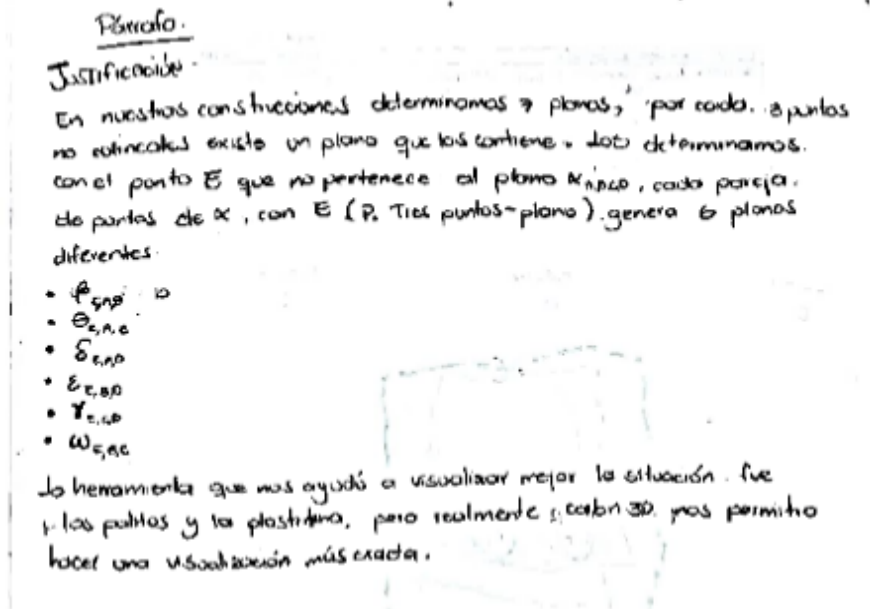 Párrafo.
Justificación.
En nuestras construcciones determinamos 7 planos, por cada 3 puntos
no colineales existe un plano que los contiene. Los determinamos.
con el punto E que no pertenece al plano α A,B,C,D, cada pareja.
de puntos de α, con E (P. Tres puntos-plano) genera 6 planos
diferentes.
• φ E,A,B
• θ E,A,C
• δ E,A,D
• ε E,B,D
• γ E,C,D
• ω E,B,C
La herramienta que nos ayudó a visualizar mejor la situación fue
los palitos y la plastilina, pero realmente 3D nos permitio
hacer una visualización más exacta.